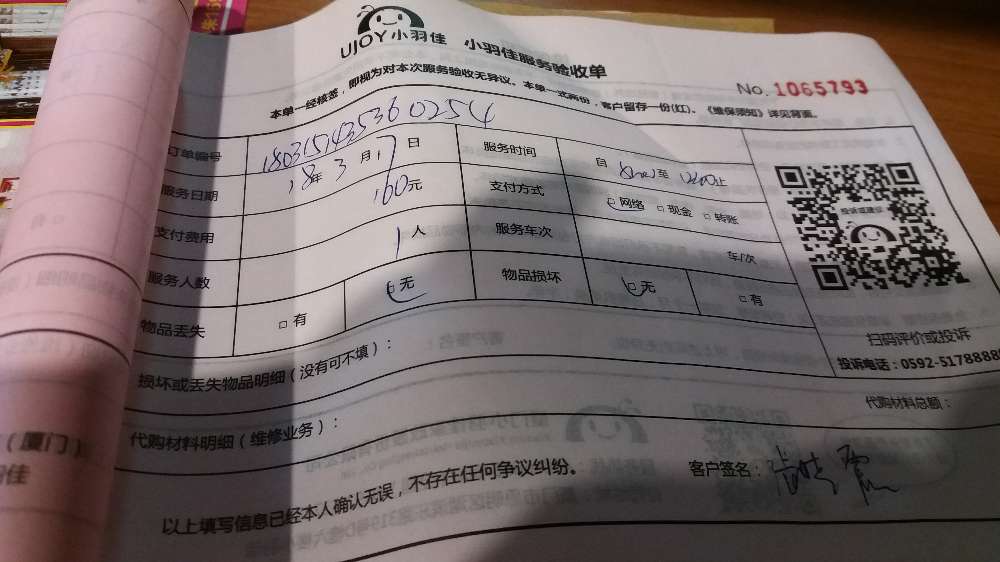 UJOY小羽佳 小羽佳服务验收单
No. 1065793
本单一经核签，即视为对本次服务验收无异议。本单一式两份，客户留存一份(红)。《维保须知》详见背面。
订单编号 180315143536 0254
服务日期 18年3月17日 服务时间 自 至 12:00止
支付费用 160元 支付方式 □网络 □现金 □转账
服务人数 1人 服务车次 车/次
物品丢失 □有 □无 物品损坏 □无 □有
投诉或建议
扫码评价或投诉
投诉电话：0592-5178888
损坏或丢失物品明细（没有可不填）：
代购材料明细（维修业务）： 代购材料总额：
以上填写信息已经本人确认无误，不存在任何争议纠纷。 客户签名：
（厦门）